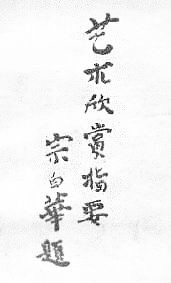 艺术欣赏指要
宗白華题